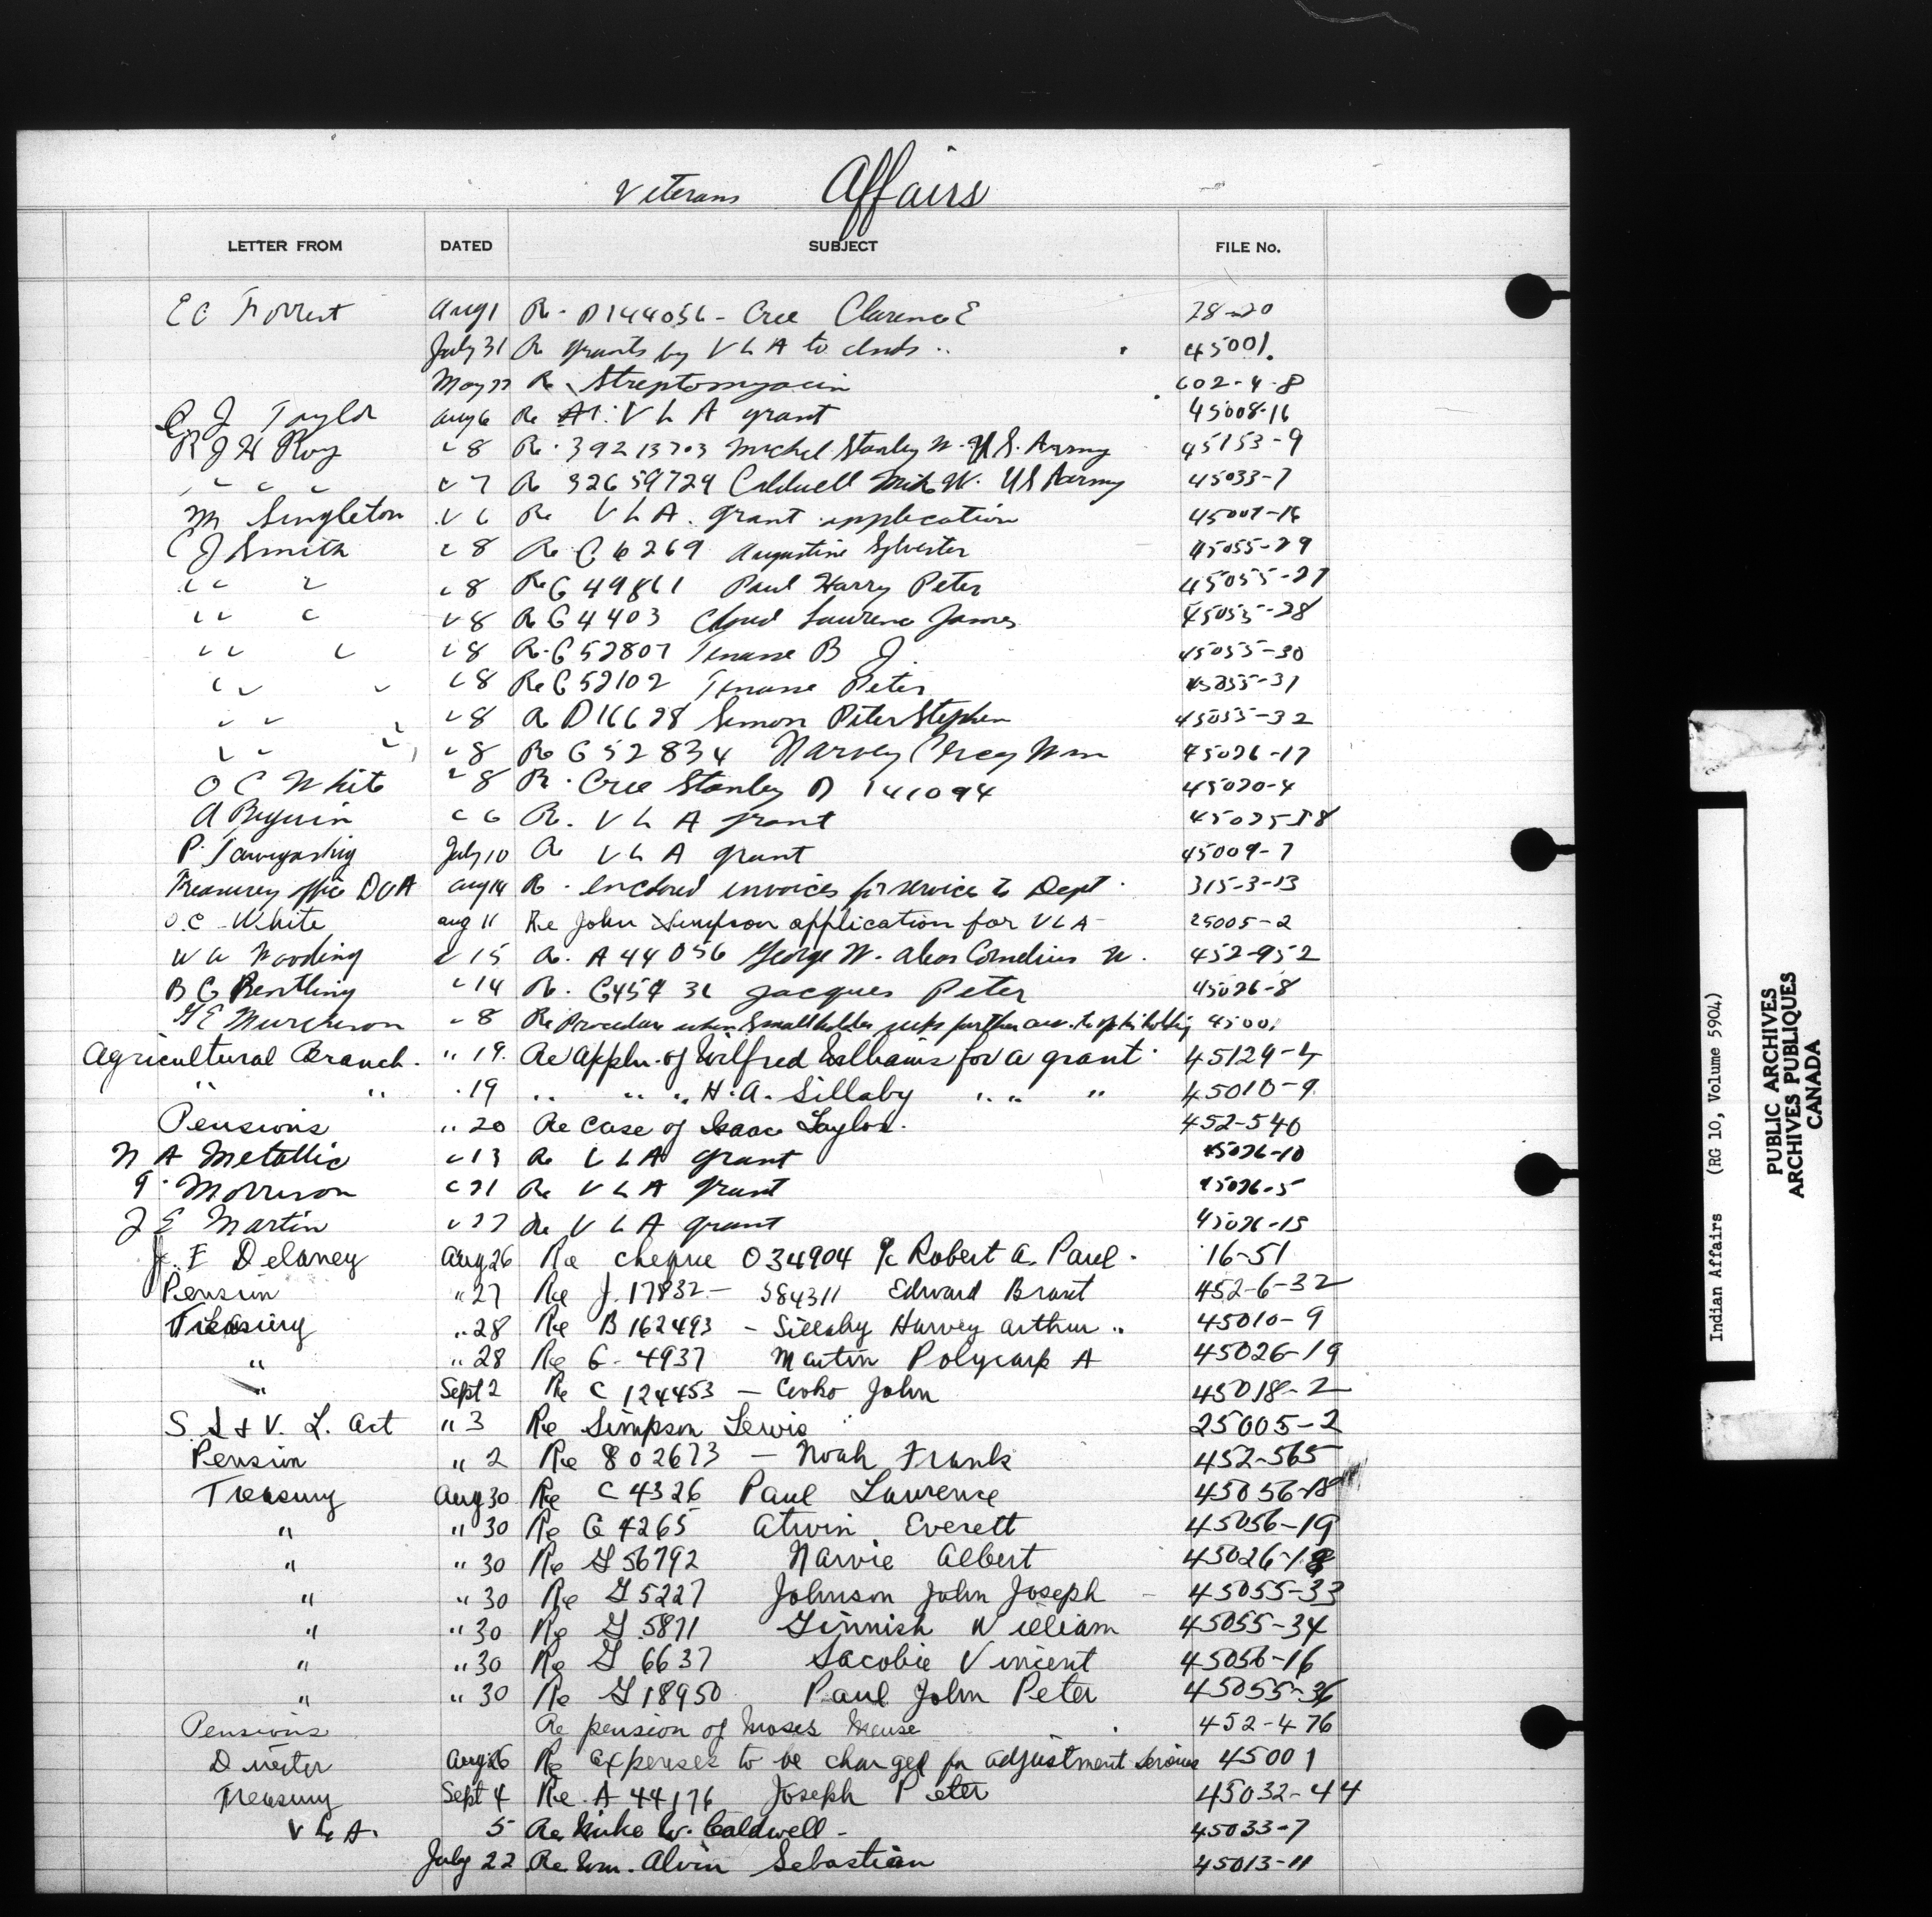 Veterans Affairs
LETTER FROM DATED SUBJECT FILE No.
E C Forrest Aug 1 Re - D144056 - Cree Clarence E 28-20
July 31 Re grants by V L A to Inds .. 45001.
May 27 Re Streptomyacin 602-4-8
C J Taylor Aug 6 Re V L A grant 45008-16
R J H Roy " 8 Re. 39213703 Michel Stanley W. U.S. Army 45153-9
" " " " " 7 Re 32659729 Caldwell Mike W. US Army 45033-7
M Singleton " 6 Re V L A. grant application 45007-16
C J Smith " 8 Re G 6269 Augustine Sylvester 45055-29
" " " " 8 Re G 49861 Paul Harry Peter 45055-27
" " " " 8 Re G 4403 Cloud Laurence James 45055-28
" " " " 8 Re. G 52807 Tenasse B J. 45055-30
" " " " 8 Re G 52102 Tenasse Peter 45055-31
" " " " 8 Re D16628 Simon Peter Stephen 45055-32
" " " " 8 Re G 52834 Narvey Wm 45026-17
O C White " 8 Re. Cree Stanley D 141094 45020-4
A Beguin " 6 Re. V L A grant 45025-18
P. July 10 Re V L A grant 45009-7
Treasury office DVA Aug 14 Re. enclosed invoices for service to Dept. 315-3-13
O.C. White Aug 11 Re John Simpson application for VLA - 25005-2
W A Wooding " 15 Re. A 44056 George W. alias Cornelius W. 452-952
B G " 14 Re. G45431 Jacques Peter 45026-8
G E Murchison " 8 Re Procedure when Small holder further holding 45001
Agricultural Branch. " 19. Re Appln. of Wilfred Williams for a grant. 45129-4
" " . 19 " " " H. A. Sillaby " " " 45010-9
Pensions " 20 Re case of Isaac Taylor. 452-540
N A Metallic " 13 Re V L A grant 45026-10
G. Morrison " 21 Re V L A grant 45026-5
J E Martin " 27 Re V L A grant 45026-15
J. E Delaney Aug 26 Re cheque 034904 Robert A. Paul. 16-51
Pension " 27 Re J. 17832 - 584311 Edward Brant 452-6-32
Treasury " 28 Re B 162493 - Sillaby Harvey Arthur " 45010-9
" " 28 Re G - 4937 Martin Polycarp A 45026-19
" Sept 2 Re C 124453 - Cooko John 45018-2
S. S & V. L. Act " 3 Re Simpson Lewis 25005-2
Pension " 2 Re 802673 - Noah Frank 452-565
Treasury Aug 30 Re C 4326 Paul Lawrence 45056-18
" " 30 Re G 4265 Atwin Everett 45056-19
" " 30 Re G 56792 Narvie Albert 45026-18
" " 30 Re G 5227 Johnson John Joseph - 45055-33
" " 30 Re G 5871 Ginnish William 45055-34
" " 30 Re G 6637 Sacobie Vincent 45056-16
" " 30 Re G 18950 Paul John Peter 45055-36
Pensions Re pension of Moses Meuse 452-476
Director Aug 26 Re expenses to be charged for adjustment services 45001
Treasury Sept 4 Re. A 44176 Joseph Peter 45032-44
V L A. 5 Re Mike W. Caldwell - 45033-7
July 22 Re Wm. Alvin Sebastian 45013-11
Indian Affairs (RG 10, Volume 5904)
PUBLIC ARCHIVES
ARCHIVES PUBLIQUES
CANADA